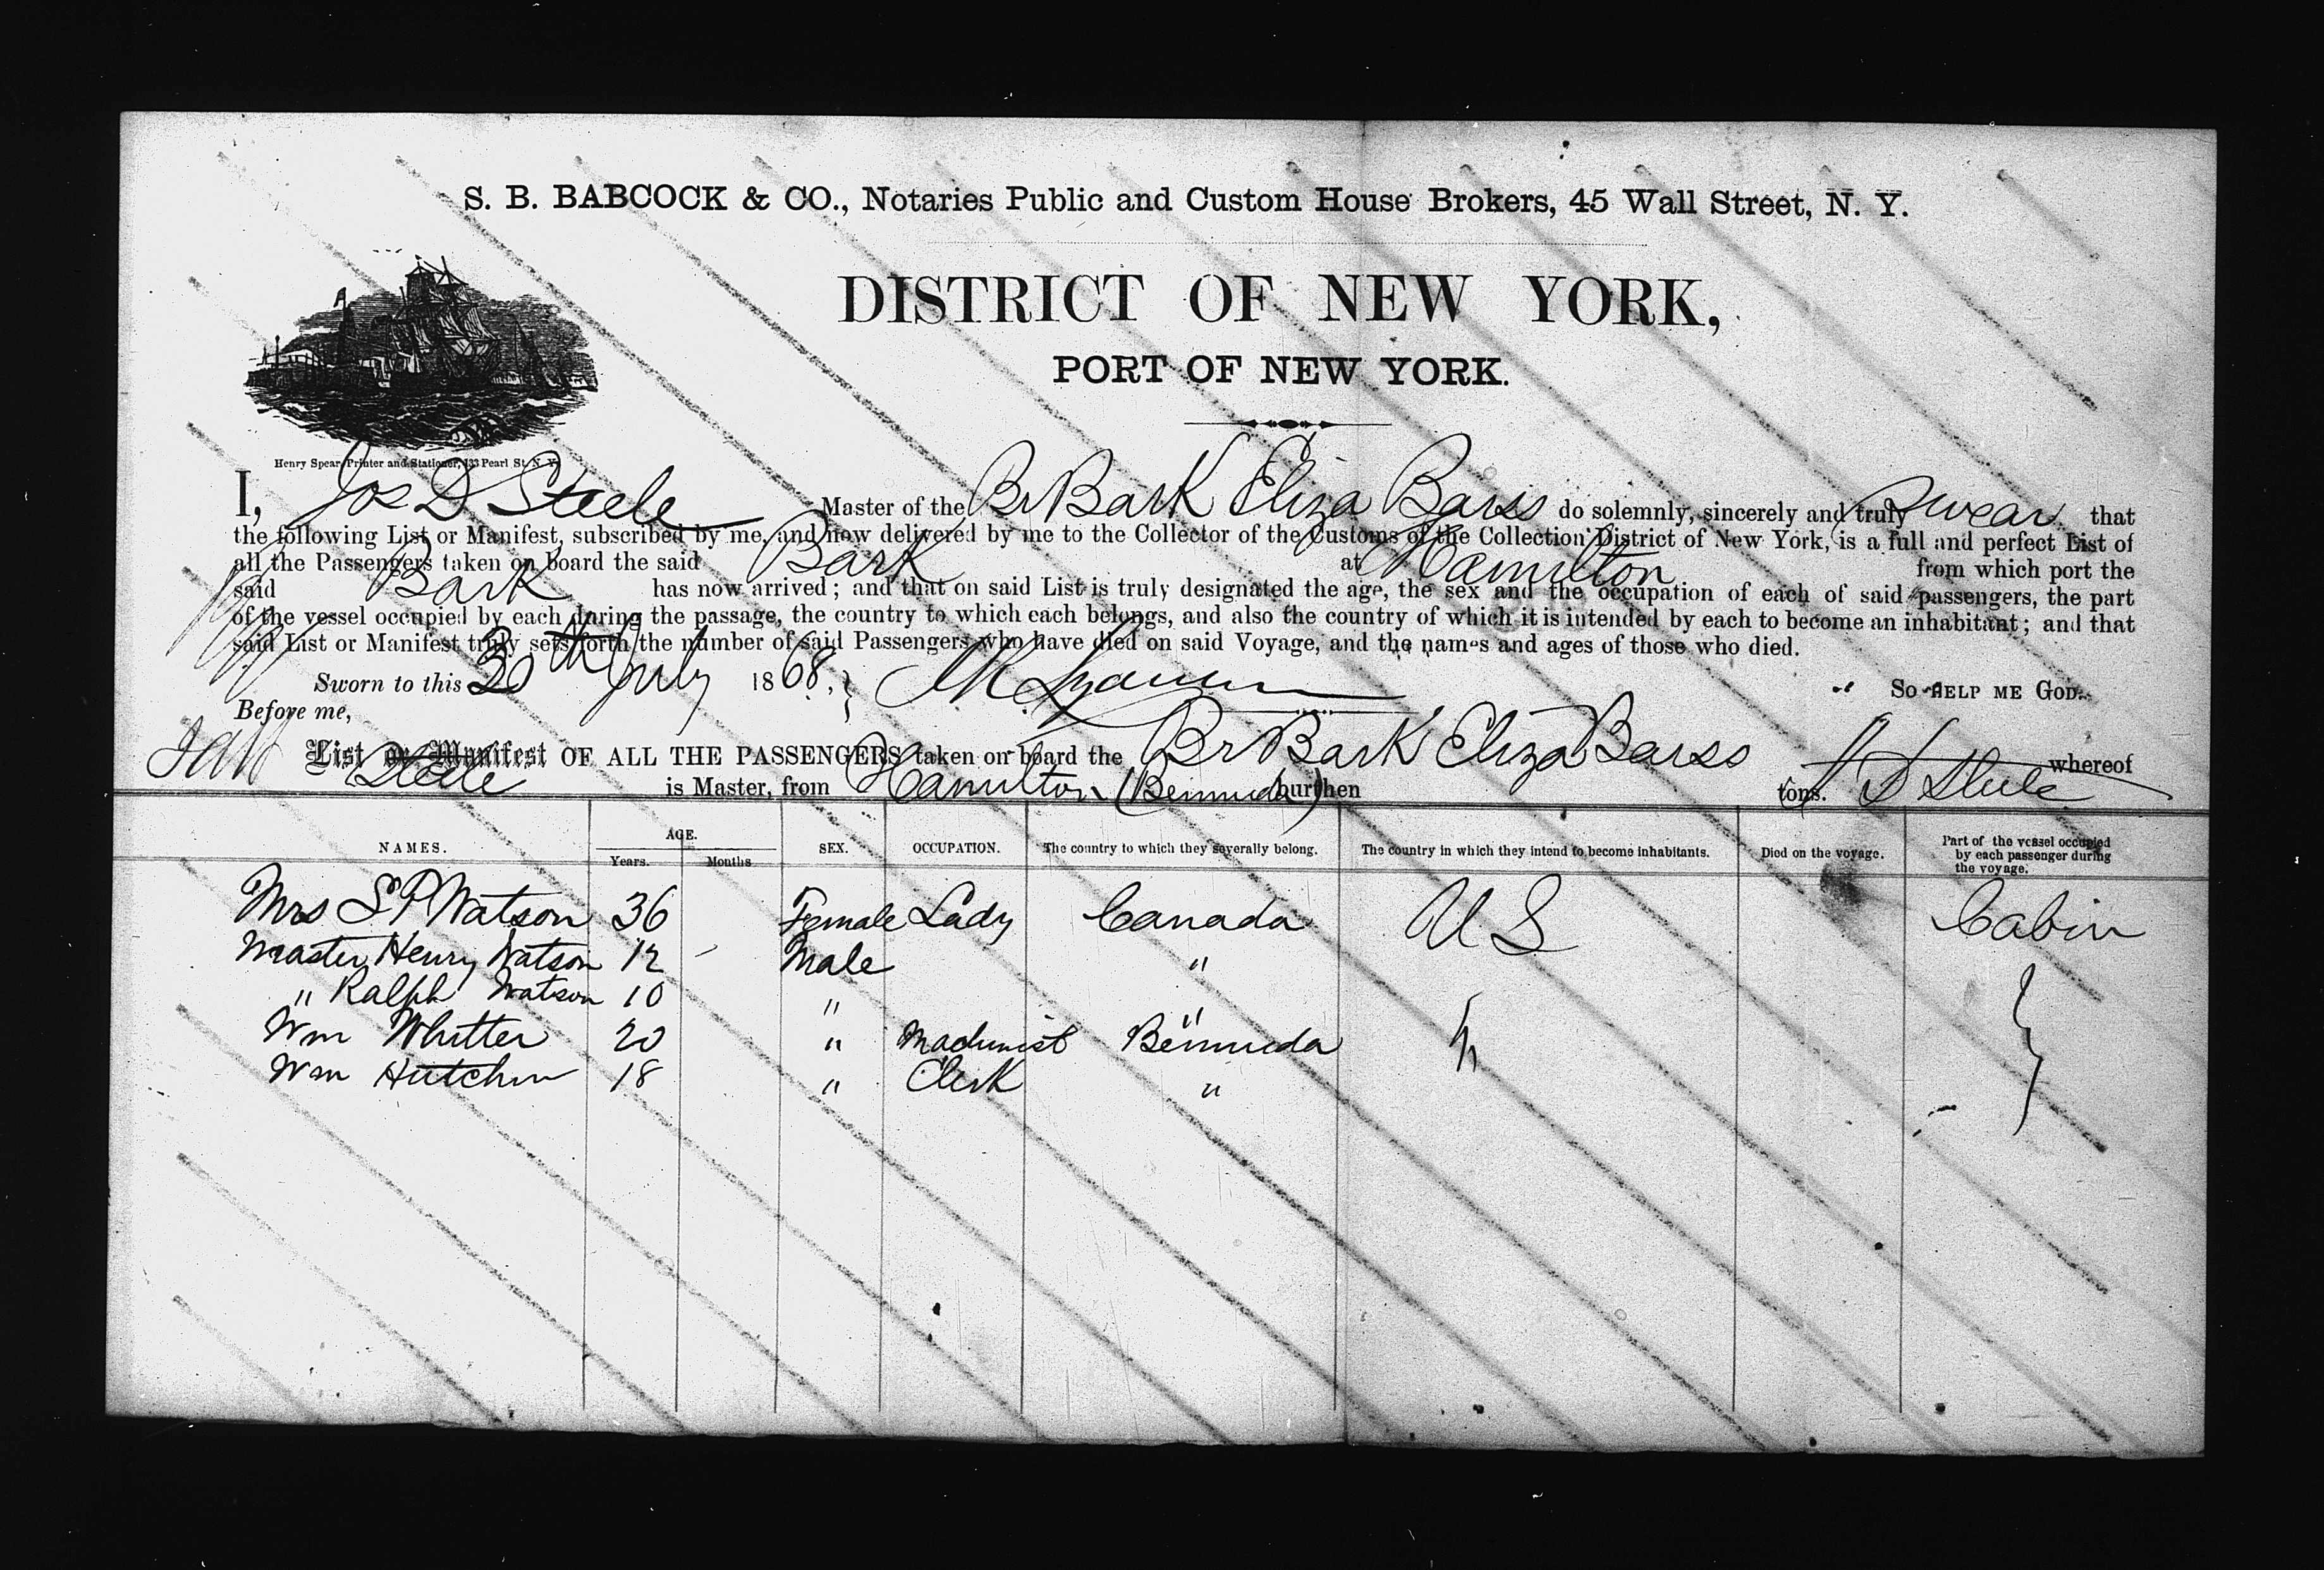 S. B. BABCOCK & CO., Notaries Public and Custom House Brokers, 45 Wall Street, N. Y.
DISTRICT OF NEW YORK,
PORT OF NEW YORK.
Henry Spear, Printer and Stationer, 133 Pearl St. N. Y.
I, Jos D Steele Master of the Br Bark Eliza Barss do solemnly, sincerely and truly Swear that
the following List or Manifest, subscribed by me, and now delivered by me to the Collector of the Customs of the Collection District of New York, is a full and perfect List of
all the Passengers taken on board the said Bark at Hamilton from which port the
said Bark has now arrived; and that on said List is truly designated the age, the sex and the occupation of each of said passengers, the part
of the vessel occupied by each during the passage, the country to which each belongs, and also the country of which it is intended by each to become an inhabitant; and that
said List or Manifest truly sets forth the number of said Passengers who have died on said Voyage, and the names and ages of those who died.
Sworn to this 30th July 1868. SO HELP ME GOD.
Before me,
List or Manifest OF ALL THE PASSENGERS taken on board the Br Bark Eliza Barss whereof
Steele is Master, from Hamilton (Bermuda) burthen tons. J D Steele
NAMES. AGE. SEX. OCCUPATION. The country to which they severally belong. The country in which they intend to become inhabitants. Died on the voyage. Part of the vessel occupied by each passenger during the voyage.
Years. Months
Mrs S P Watson 36 Female Lady Canada U S Cabin
Master Henry Watson 12 - Male "
" Ralph Watson 10 " "
Wm Whitter 20 " Machinist Bermuda "
Wm Hutchin 18 " Clerk "